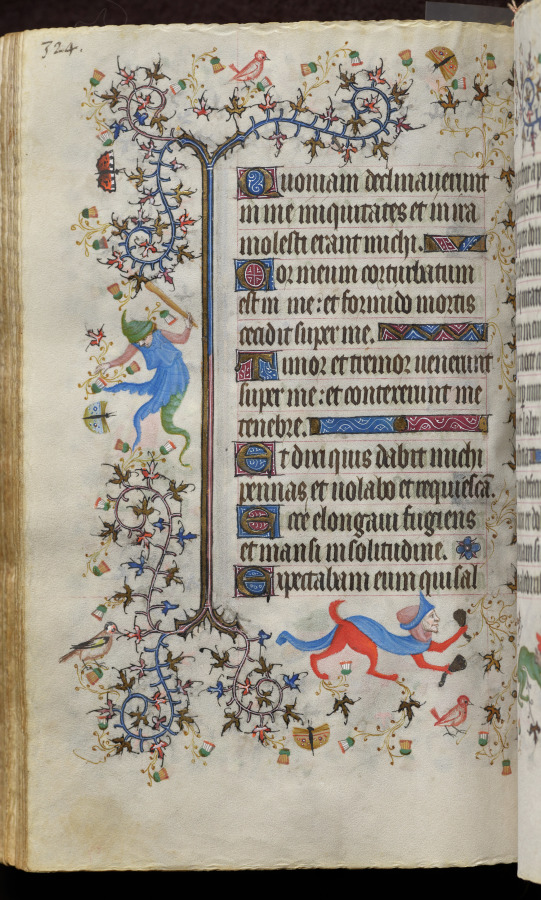 324.
Quoniam declinauerunt
in me iniquitates et in ira
molesti erant michi.
Cor meum conturbatum
est in me: et formido mortis
cecidit super me.
Timor et tremor uenerunt
super me: et contexerunt me
tenebre.
Et dixi quis dabit michi
pennas et uolabo et requiescā.
Ecce elongaui fugiens
et mansi in solitudine.
Expectabam eum qui sal